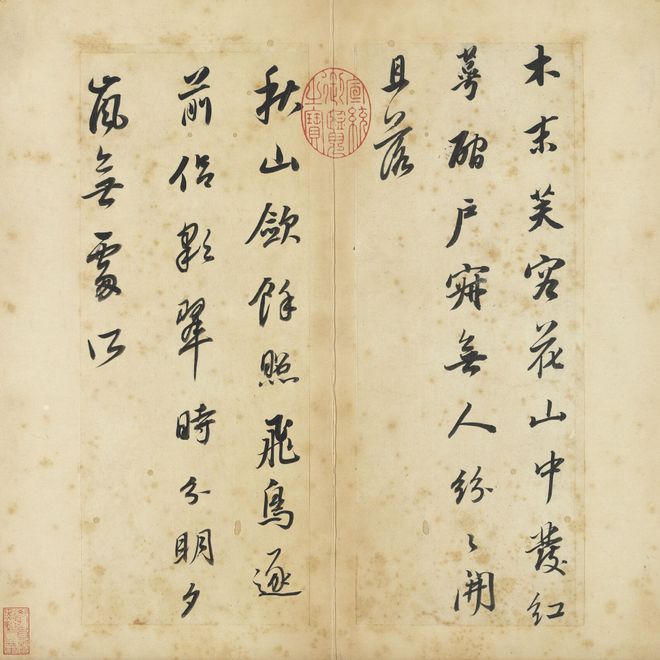 木末芙容花山中發紅
萼磵戶寂無人紛〻開
且落
宣統御覽之寶
秋山歛餘照飛鳥逐
前侶彩翠時分明夕
嵐無處所